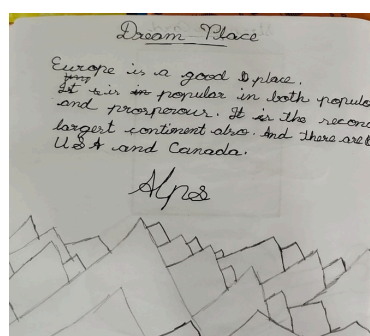 Dream Place
Europe is a good place.
It is popular in both popula
and prosperous. It is the secon
largest continent also. And there are
USA and Canada.
Alps